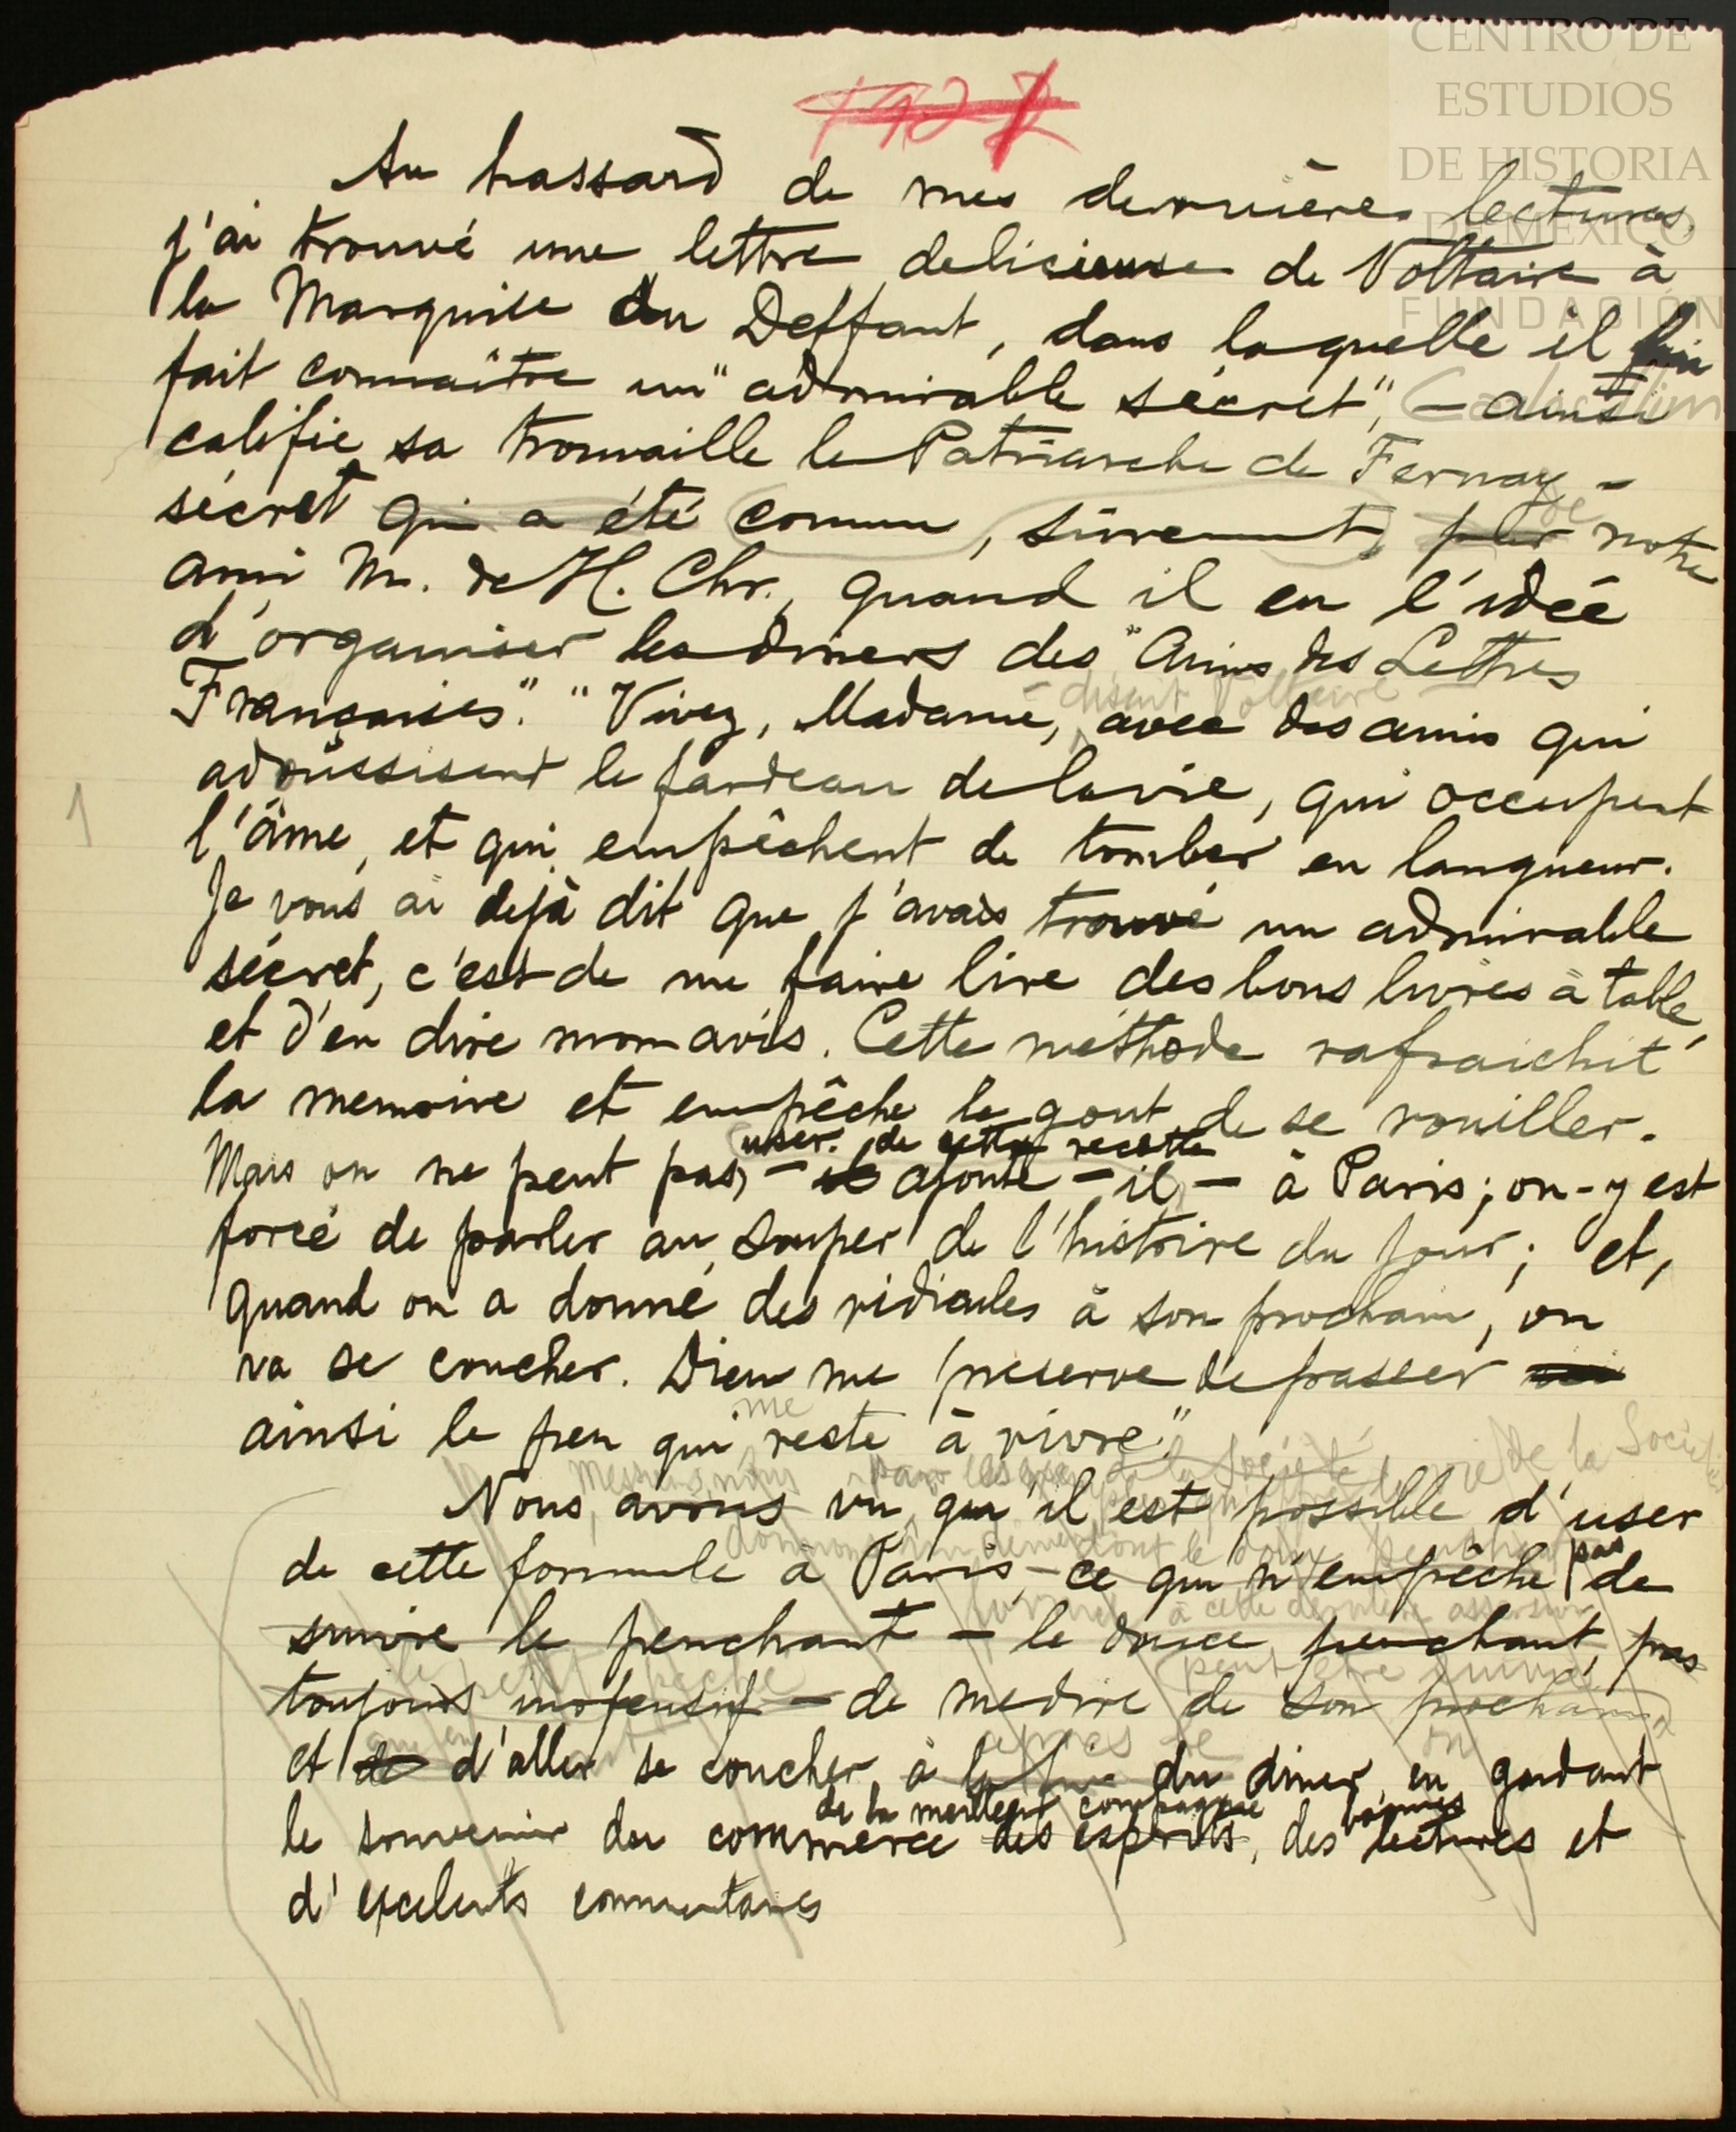 CENTRO DE
ESTUDIOS
DE HISTORIA
DE MÉXICO
FUNDACIÓN
1927
Au hassard de mes dernières lectures,
j'ai trouvé une lettre delicieuse de Voltaire à
la Marquise du Deffant, dans laquelle il lui
fait connaître un "admirable sécret", – ainsi
califie sa trouvaille le Patriarche de Fernay –
sécret qui a été connu, sûrement, par de notre
ami M. de H. Chr., quand il eu l'idée
d'organiser les diners des "Amis des Lettres
Françaises." "Vivez, Madame, – disait Voltaire – avec des amis qui
adoussissent le fardeau de la vie, qui occupent
1
l'âme, et qui empêchent de tomber en langueur.
Je vous ai dejà dit que j'avais trouvé un admirable
sécret, c'est de me faire lire des bons livres à table,
et d'en dire mon avis. Cette méthode rafraichit
la memoire et empêche le gout de se rouiller.
user de cette recette
Mais on ne peut pas, – ajoute – il – à Paris; on-y est
forcé de parler au souper de l'histoire du jour; et,
quand on a donné des ridicules à son prochain, on
va se coucher. Dieu me preserve de passer
me
ainsi le peu qui reste à vivre"
vie de la Société
Nous avons vu qu'il est possible d'user
pas
de cette formule à Paris, – ce qui n'empêche de
à cette dernière assertion
suivre le penchant – le douce penchant, pas
peut être
toujours inofensif – de medire de son prochain
et de d'aller se coucher, à la fin du diner, en gardant
de la meilleur compagnie bonnes
le souvenir du commerce des esprits, des lectures et
d'excelents commentaires